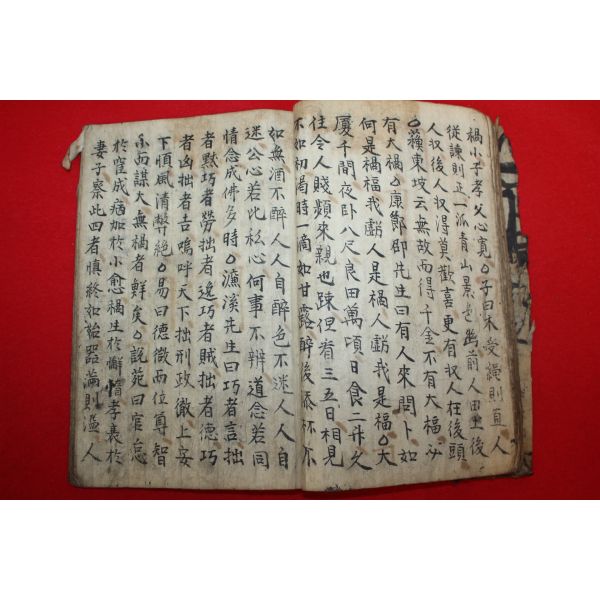 禍小子孝父心寬〇子曰木受繩則直人
從諫則正一派青山景色幽前人田土後
人収後人収得莫歡喜更有収人在後頭
〇蘓東坡云無故而得千金不有大福必
有大禍〇康節邵先生曰有人來問卜如
何是禍福我虧人是禍人虧我是福〇大
廈千間夜卧八尺良田萬頃日食二升久
住令人賤頻來親也踈但看三五日相見
不如初渴時一滴如甘露醉後添杯不
如無酒不醉人人自醉色不迷人人自
迷公心若比私心何事不辨道念若同
情念成佛多時〇濂溪先生曰巧者言拙
者默巧者勞拙者逸巧者賊拙者德巧
者凶拙者吉嗚呼天下拙刑政徹上安
下順風清弊絶〇易曰德微而位尊智
小而謀大無禍者鮮矣〇說苑曰官怠
於宦成病加於小愈禍生於懈惰孝衰於
妻子察此四者慎終如始器滿則溢人